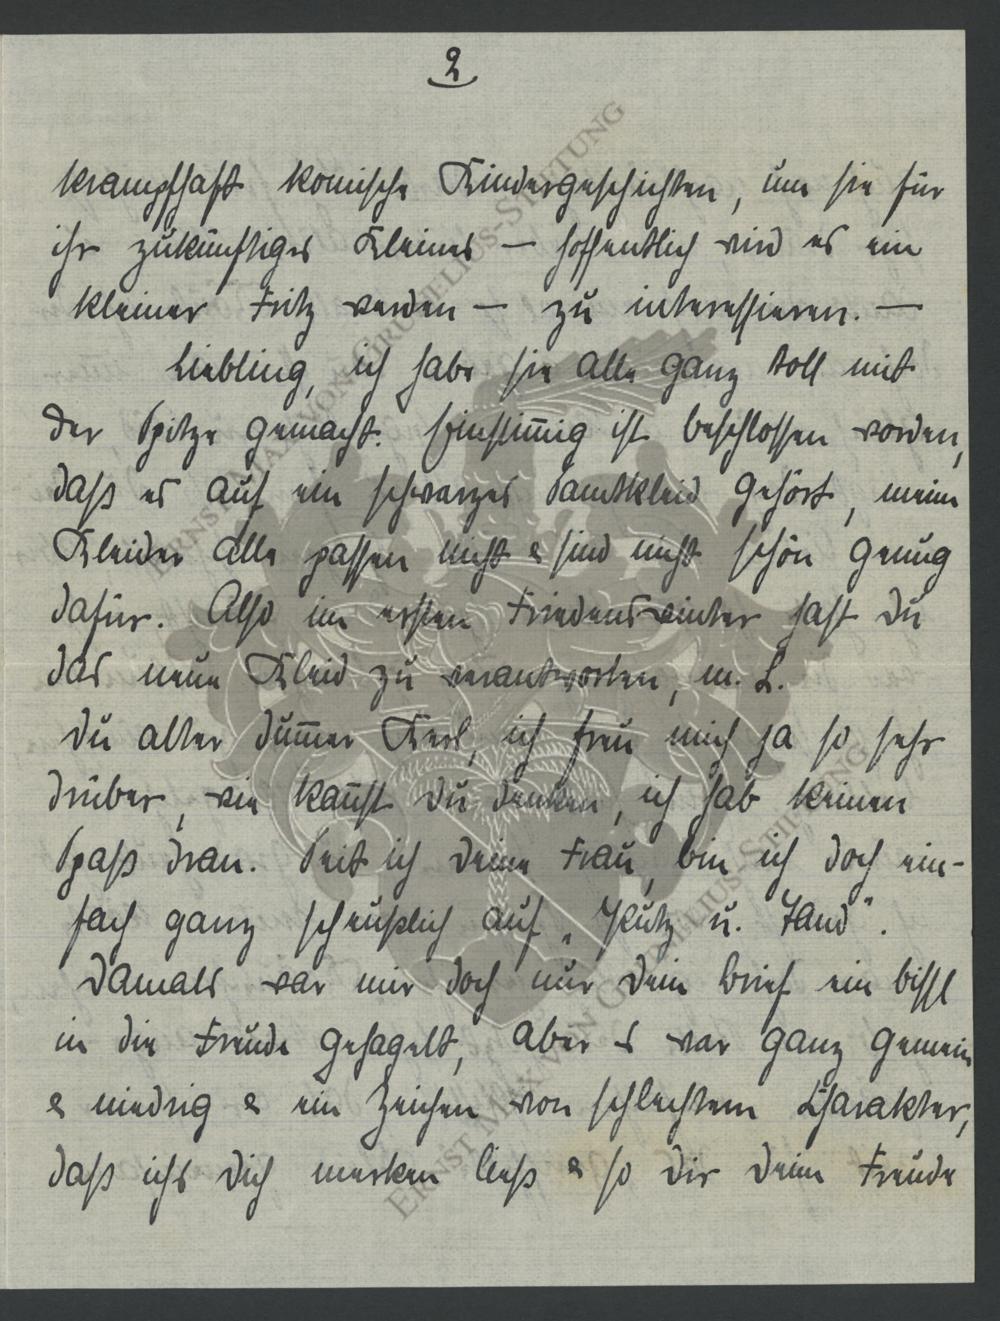 2
krampfhaft komische Kindergeschichten, um sie für
ihr zukünftiges Kleines — hoffentlich wird es ein
kleiner Fritz werden — zu interessieren. —
Liebling, ich habe sie alle ganz toll mit
der Spitze gemacht. Einstim̄ig ist beschlossen worden,
daß es auf ein schwarzes Samtkleid gehört, meine
Kleider alle passen nicht & sind nicht schön genug
dafür. Also im ersten Friedenswinter hast du
das neue Kleid zu verantworten, m. L.
Du alter dum̄er Kerl, ich freu mich ja so sehr
drüber, wie kan̄st du denken, ich hab keinen
Spaß dran. Seit ich deine Frau, bin ich doch ein-
fach ganz scheußlich auf „Putz u. Tand".
Damals war mir doch nur dein Brief ein bissl
in die Freude gehagelt, aber es war ganz gemein
& niedrig & ein Zeichen von schlechtem Charakter,
daß ichs dich merken ließ & so dir deine Freude
ERNST MAX VON GRUNELIUS-STIFTUNG
ERNST MAX VON GRUNELIUS-STIFTUNG